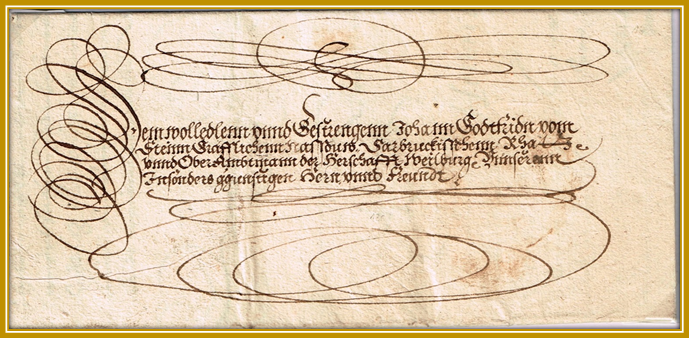 Dem wolledlenn vnnd Gestrengenn Johann Godtfridn vom
Steinn Gräfflichenn Nassauw. Sarbruckischenn Rha
vnnd Ober Ambtmann der Herschafft Weilburg. Vnnserenn
Insonders ggünstigen Hern vnnd Freundt